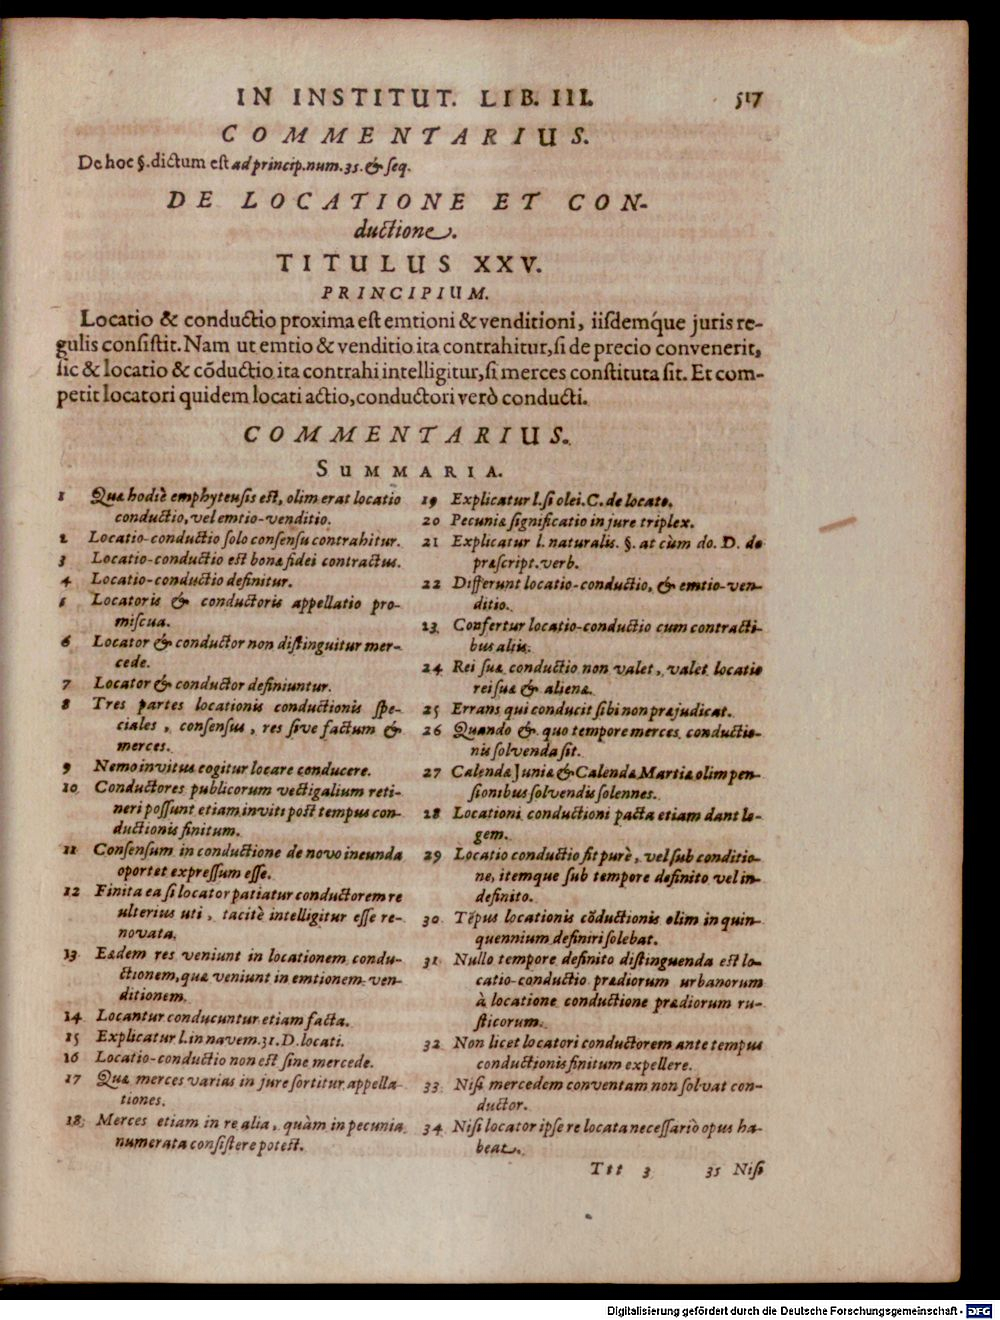 IN INSTITUT. LIB. III. 517
COMMENTARIUS.
De hoc §. dictum est ad princip. num. 35. & seq.
DE LOCATIONE ET CON-
ductione.
TITULUS XXV.
PRINCIPIUM.
Locatio & conductio proxima est emtioni & venditioni, iisdemq́ue juris re-
gulis consistit. Nam ut emtio & venditio ita contrahitur, si de precio convenerit,
sic & locatio & cōductio ita contrahi intelligitur, si merces constituta sit. Et com-
petit locatori quidem locati actio, conductori verò conducti.
COMMENTARIUS.
SUMMARIA.
1 Quæ hodiè emphyteusis est, olim erat locatio
conductio, vel emtio-venditio.
2 Locatio-conductio solo consensu contrahitur.
3 Locatio-conductio est bonæ fidei contractus.
4 Locatio-conductio definitur.
5 Locatoris & conductoris appellatio pro-
miscua.
6 Locator & conductor non distinguitur mer-
cede.
7 Locator & conductor definiuntur.
8 Tres partes locationis conductionis spe-
ciales, consensus, res sive factum &
merces.
9 Nemo invitus cogitur locare conducere.
10 Conductores publicorum vectigalium reti-
neri possunt etiam inviti post tempus con-
ductionis finitum.
11 Consensum in conductione de novo ineunda
oportet expressum esse.
12 Finita ea si locator patiatur conductorem re
ulterius uti, tacitè intelligitur esse re-
novata.
13 Eædem res veniunt in locationem condu-
ctionem, quæ veniunt in emtionem-ven-
ditionem.
14 Locantur conducuntur etiam facta.
15 Explicatur l. in navem. 31. D. locati.
16 Locatio-conductio non est sine mercede.
17 Quæ merces varias in jure sortitur appella-
tiones.
18 Merces etiam in re alia, quàm in pecunia
numerata consistere potest.
19 Explicatur l. si olei. C. de locato.
20 Pecuniæ significatio in jure triplex.
21 Explicatur l. naturalis. §. at cùm do. D. de
præscript. verb.
22 Differunt locatio-conductio, & emtio-ven-
ditio.
23 Confertur locatio-conductio cum contracti-
bus aliis.
24 Rei suæ conductio non valet, valet locatio
rei suæ & alienæ.
25 Errans qui conducit sibi non præjudicat.
26 Quando & quo tempore merces conductio-
nis solvenda sit.
27 Calendæ Juniæ & Calendæ Martiæ olim pen-
sionibus solvendis solennes.
28 Locationi conductioni pacta etiam dant le-
gem.
29 Locatio conductio fit purè, vel sub conditio-
ne, itemque sub tempore definito vel in-
definito.
30 Tēpus locationis cōductionis olim in quin-
quennium definiri solebat.
31 Nullo tempore definito distinguenda est lo-
catio-conductio prædiorum urbanorum
à locatione conductione prædiorum ru-
sticorum.
32 Non licet locatori conductorem ante tempus
conductionis finitum expellere.
33 Nisi mercedem conventam non solvat con-
ductor.
34 Nisi locator ipse re locata necessariò opus ha-
beat.
Ttt 3 35 Nisi
Digitalisierung gefördert durch die Deutsche Forschungsgemeinschaft - DFG